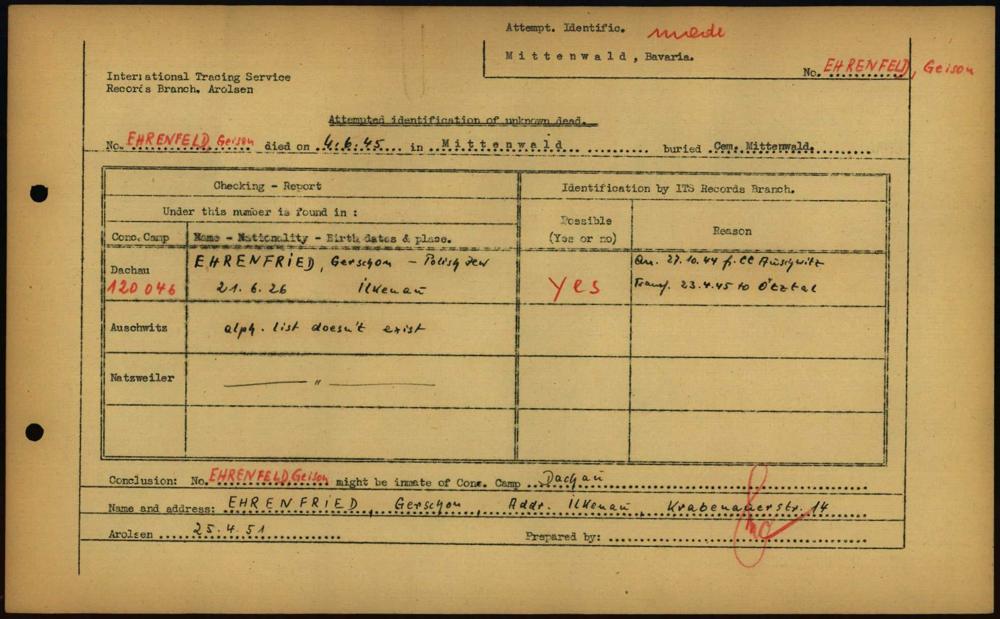 Attempt. Identific. made
Mittenwald, Bavaria.
No. EHRENFELD, Geison
International Tracing Service
Records Branch, Arolsen
Attempted identification of unknown dead.
No. EHRENFELD, Geison died on 4.6.45 in Mittenwald buried Cem. Mittenwald.
Checking - Report
Identification by ITS Records Branch.
Under this number is found in :
Possible
(Yes or no)
Reason
Conc. Camp
Name - Nationality - Birth dates & place.
Dachau
120046
EHRENFRIED, Gerschon - Polish Jew
21.6.26 Ilkenau
Yes
Arr. 27.10.44 f. CC Auschwitz
Transf. 23.4.45 to Ötztal
Auschwitz
alph. list doesn't exist
Natzweiler
— " —
Conclusion: No. EHRENFELD, Geison might be inmate of Conc. Camp Dachau
Name and address: EHRENFRIED, Gerschon, Addr. Ilkenau, Krabenauerstr. 14
Arolsen 25.4.51
Prepared by: